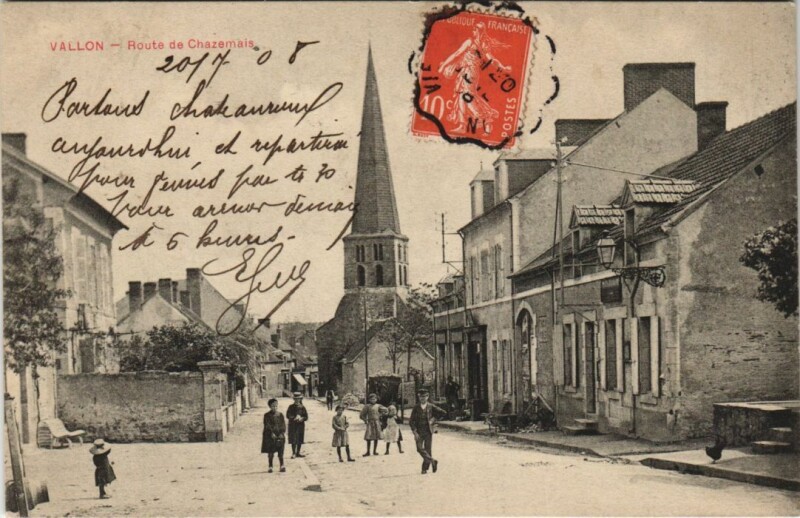 VALLON — Route de Chazemais
20 / 7 08
Partons chateauneuf
aujourdhui et repartirai
pour par
pour arriver demain
à 6 heures.
RÉPUBLIQUE FRANÇAISE
10c POSTES